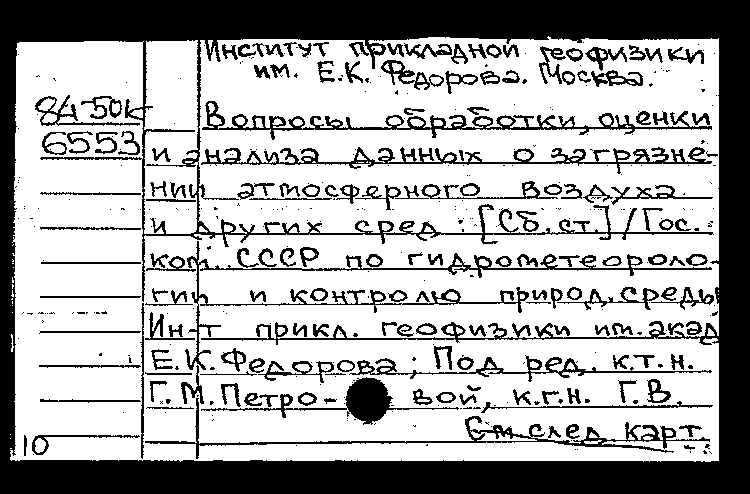 Институт прикладной геофизики
им. Е.К. Федорова. Москва.
84-50к
6553
Вопросы обработки, оценки
и анализа данных о загрязне-
нии атмосферного воздуха
и других сред : [Сб. ст.] / Гос.
ком. СССР по гидрометеороло-
гии и контролю природ. среды
Ин-т прикл. геофизики им. акад
Е.К. Федорова ; Под ред. к.т.н.
Г.М. Петро- вой, к.г.н. Г.В.
См след карт.
10